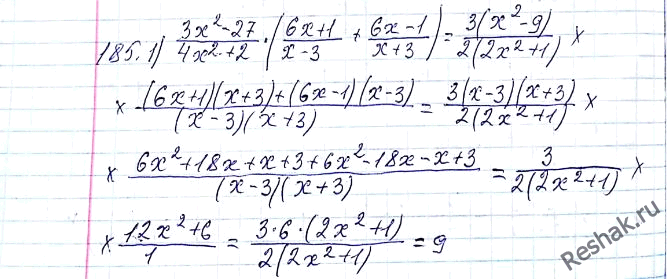 185.1) (3x²-27)/(4x²+2) · ((6x+1)/(x-3) + (6x-1)/(x+3)) = 3(x²-9)/(2(2x²+1)) ×
× ((6x+1)(x+3)+(6x-1)(x-3))/((x-3)(x+3)) = 3(x-3)(x+3)/(2(2x²+1)) ×
× (6x²+18x+x+3+6x²-18x-x+3)/((x-3)(x+3)) = 3/(2(2x²+1)) ×
× (12x²+6)/1 = (3·6·(2x²+1))/(2(2x²+1)) = 9
Reshak.ru